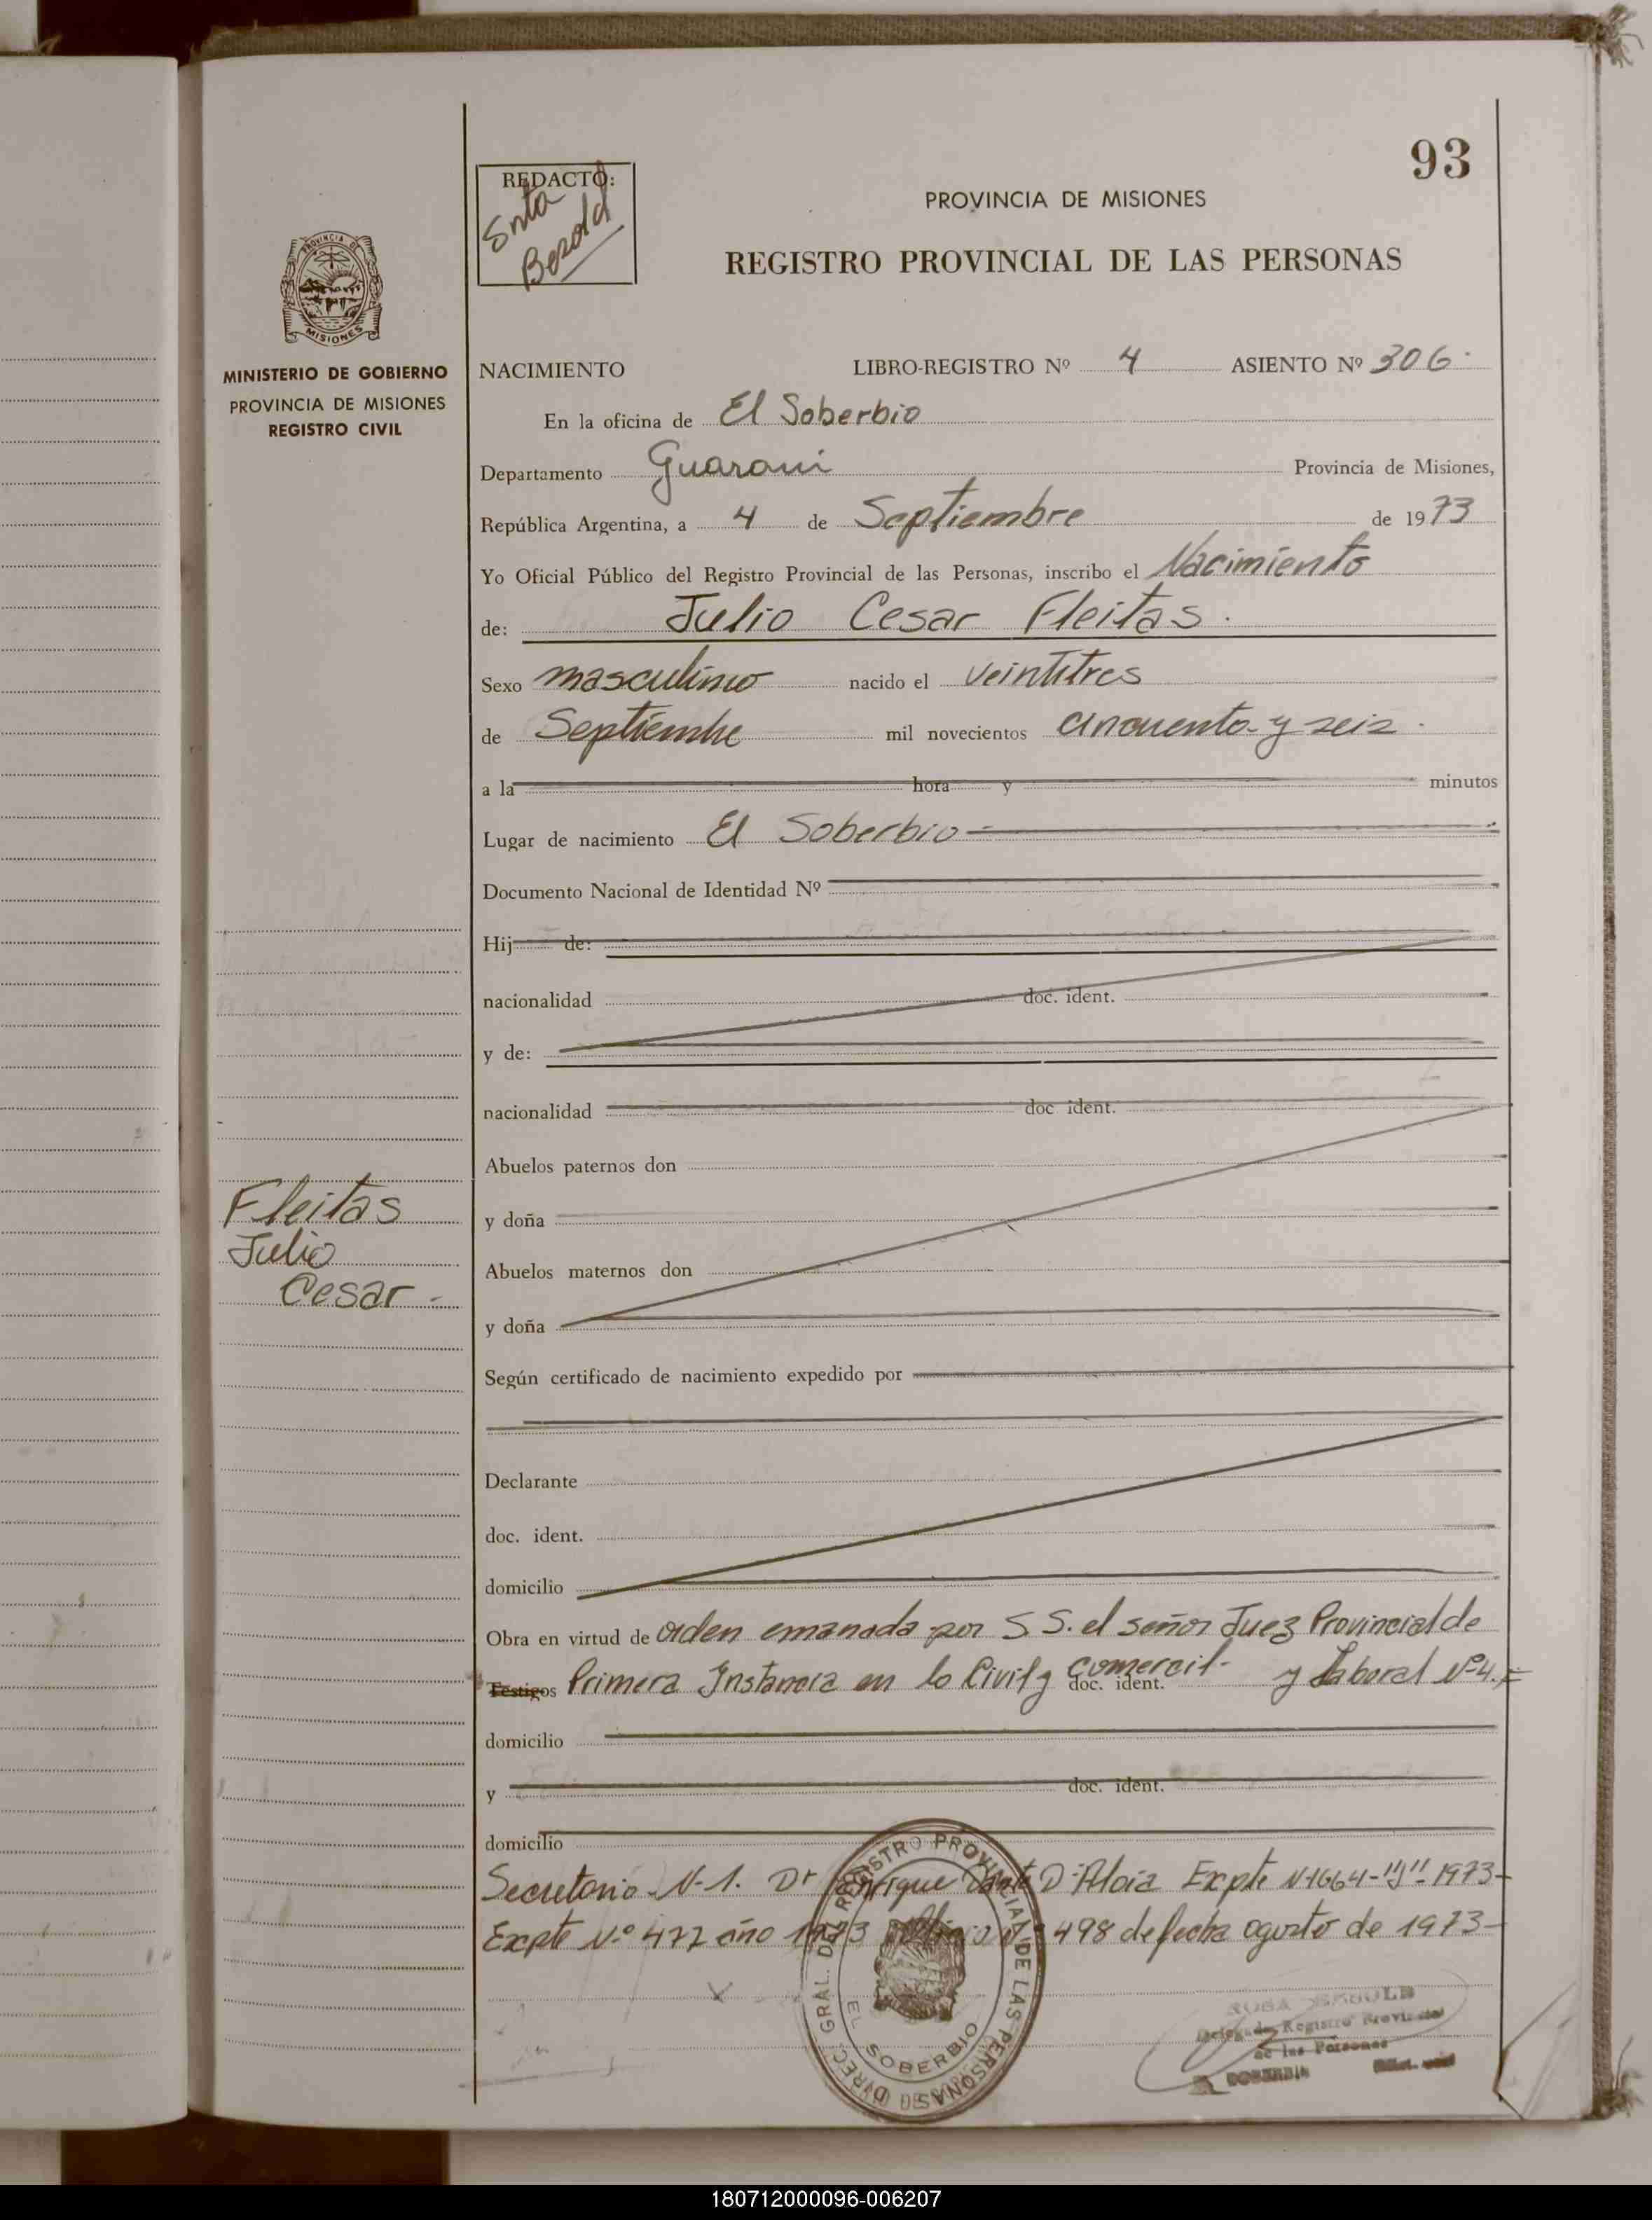 93
REDACTÓ:
Srta
Bezold
PROVINCIA DE MISIONES
REGISTRO PROVINCIAL DE LAS PERSONAS
PROVINCIA DE
MISIONES
MINISTERIO DE GOBIERNO
PROVINCIA DE MISIONES
REGISTRO CIVIL
NACIMIENTO LIBRO-REGISTRO Nº 4 ASIENTO Nº 306
En la oficina de El Soberbio
Departamento Guarani Provincia de Misiones,
República Argentina, a 4 de Septiembre de 1973
Yo Oficial Público del Registro Provincial de las Personas, inscribo el Nacimiento
de: Julio Cesar Fleitas.
Sexo masculino nacido el veintitres
de Septiembre mil novecientos cincuenta y seis.
a la hora y minutos
Lugar de nacimiento El Soberbio
Documento Nacional de Identidad Nº
Hij de:
nacionalidad doc. ident.
y de:
nacionalidad doc ident.
Abuelos paternos don
y doña
Abuelos maternos don
y doña
Fleitas
Julio
Cesar -
Según certificado de nacimiento expedido por
Declarante
doc. ident.
domicilio
Obra en virtud de orden emanada por S S. el señor Juez Provincial de
Testigos Primera Instancia en lo Civil y comercil- doc. ident. y Laboral Nº 4.
domicilio
y doc. ident.
domicilio
Secretario N-1. Dr Enrique Dante D'Aloia Expte N-1664-"J"- 1973-
Expte Nº 477 año 1973 498 de fecha agosto de 1973-
DIREC. GRAL. DEL REGISTRO PROVINCIAL DE LAS PERSONAS
EL SOBERBIO
Delegada Registro Provincial
de las Personas
SOBERBIO
180712000096-006207